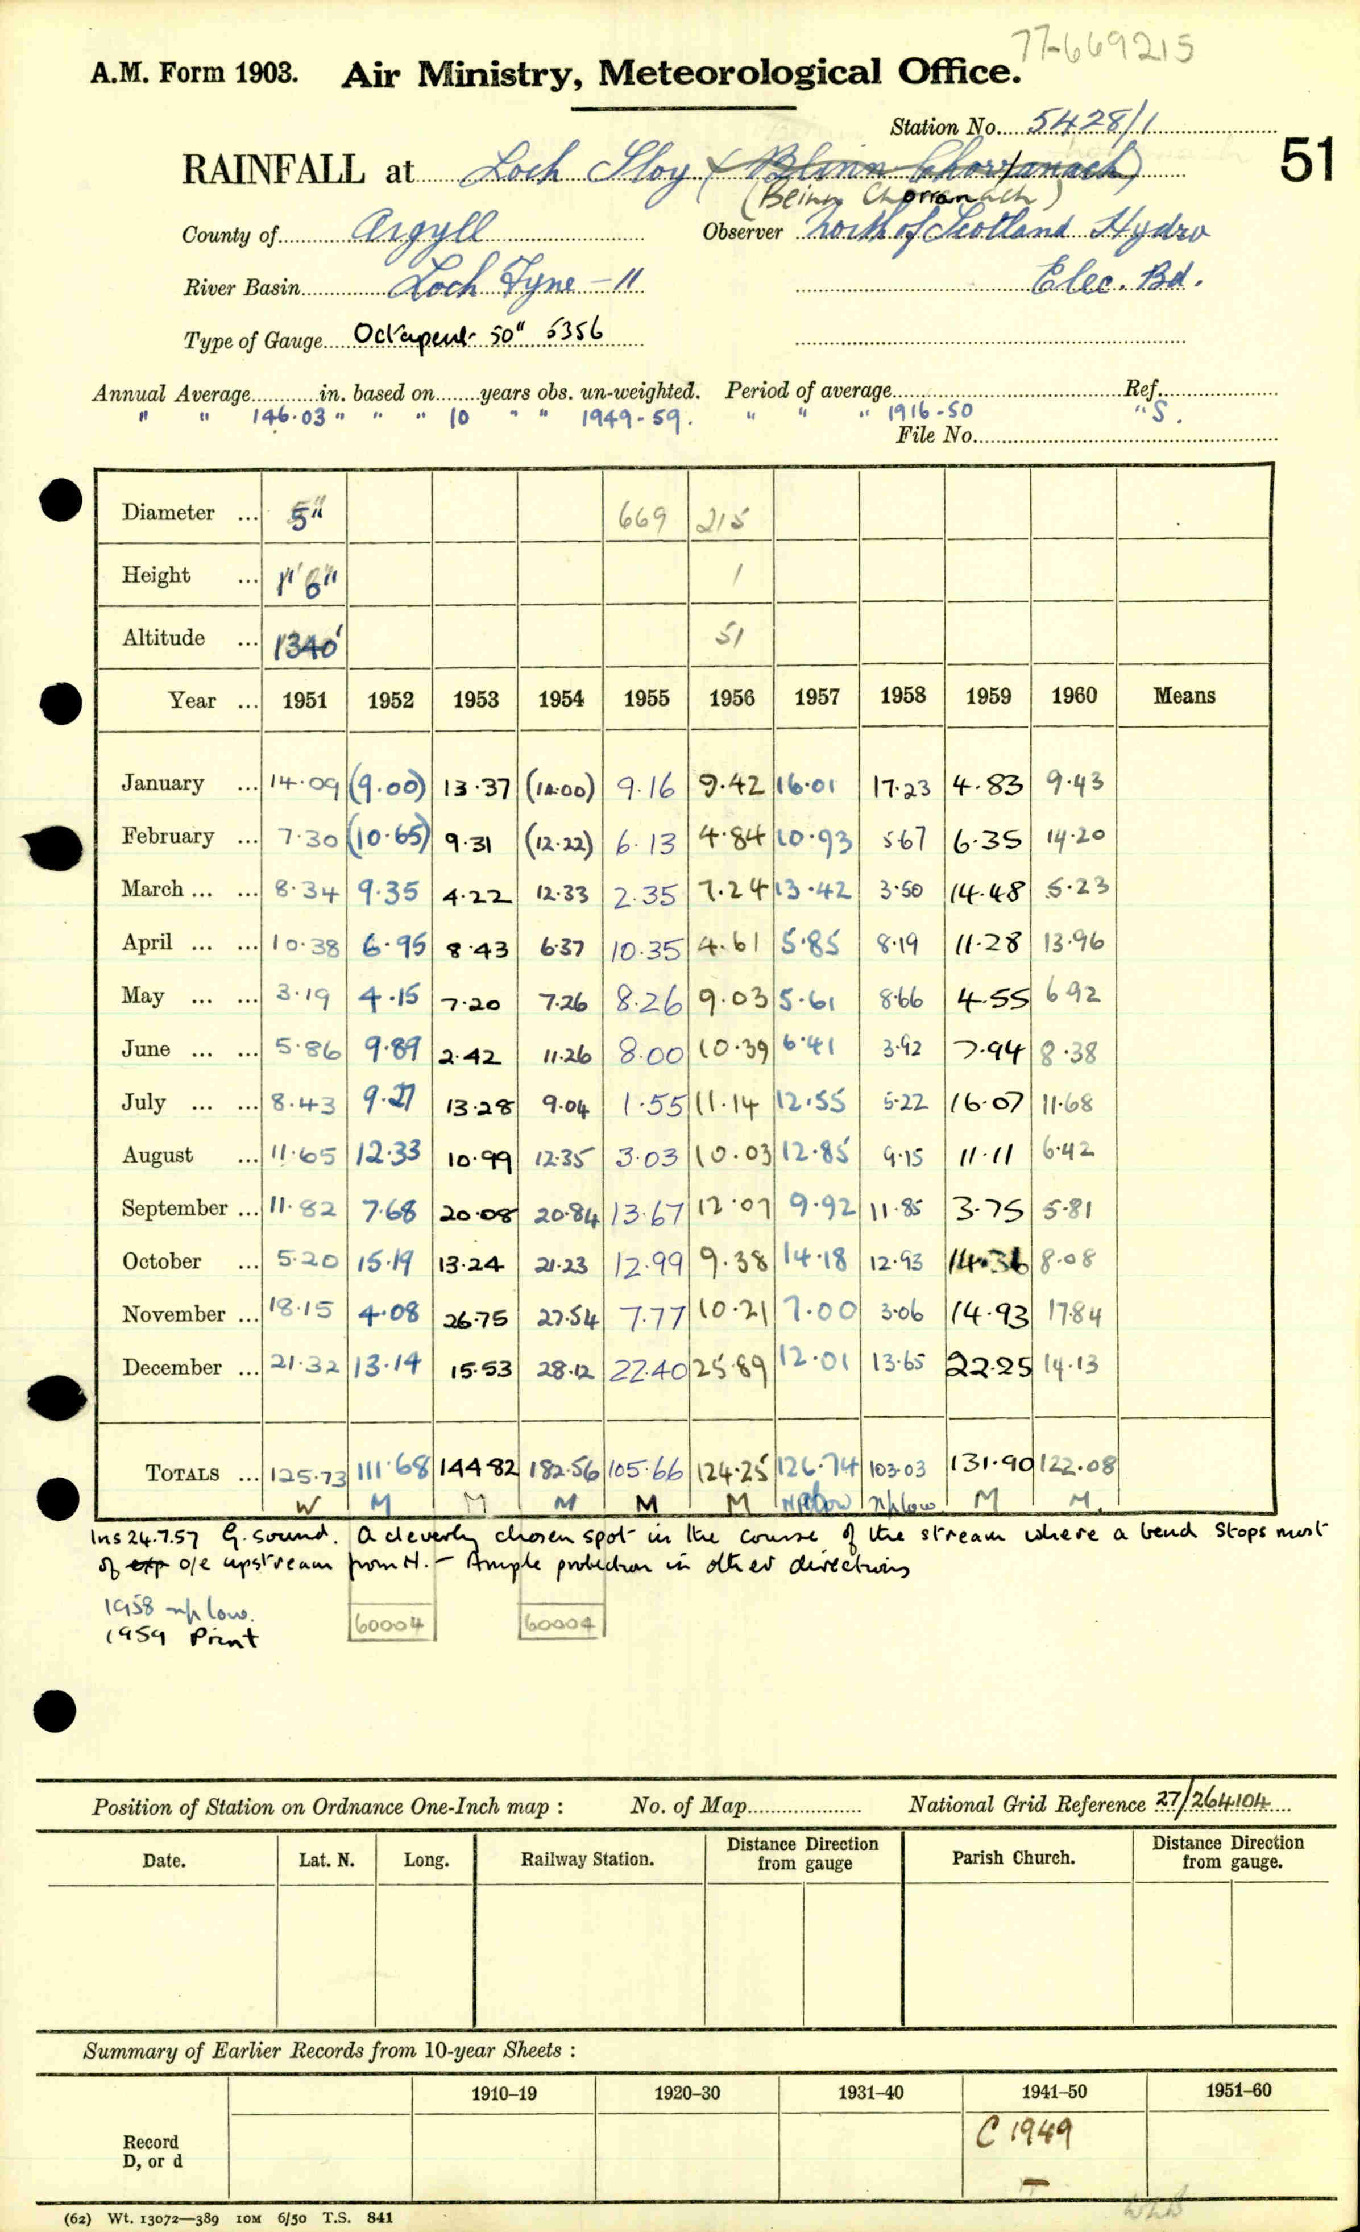 77-669215
A.M. Form 1903. Air Ministry, Meteorological Office.
Station No. 5428/1
51
RAINFALL at Loch Sloy (Blinn Chorranach)
(Beinn Chorranach)
County of Argyll Observer North of Scotland Hydro
River Basin Loch Fyne - 11 Elec. Bd.
Type of Gauge Octapent 50" 5356
Annual Average in. based on years obs. un-weighted. Period of average Ref.
" " 146.03 " " " 10 " " 1949-59. " " " 1916-50 " S.
File No.
Diameter ... 5" 669 215
Height ... 1' 6" 1
Altitude ... 1340' 51
Year ... 1951 1952 1953 1954 1955 1956 1957 1958 1959 1960 Means
January ... 14.09 (9.00) 13.37 (14.00) 9.16 9.42 16.01 17.23 4.83 9.43
February ... 7.30 (10.65) 9.31 (12.22) 6.13 4.84 10.93 5.67 6.35 14.20
March ... ... 8.34 9.35 4.22 12.33 2.35 7.24 13.42 3.50 14.48 5.23
April ... ... 10.38 6.95 8.43 6.37 10.35 4.61 5.85 8.19 11.28 13.96
May ... ... 3.19 4.15 7.20 7.26 8.26 9.03 5.61 8.66 4.55 6.92
June ... ... 5.86 9.89 2.42 11.26 8.00 10.39 6.41 3.92 7.94 8.38
July ... ... 8.43 9.27 13.28 9.04 1.55 11.14 12.55 5.22 16.07 11.68
August ... 11.65 12.33 10.99 12.35 3.03 10.03 12.85 9.15 11.11 6.42
September ... 11.82 7.68 20.08 20.84 13.67 12.07 9.92 11.85 3.75 5.81
October ... 5.20 15.19 13.24 21.23 12.99 9.38 14.18 12.93 14.36 8.08
November ... 18.15 4.08 26.75 27.54 7.77 10.21 7.00 3.06 14.93 17.84
December ... 21.32 13.14 15.53 28.12 22.40 25.89 12.01 13.65 22.25 14.13
TOTALS ... 125.73 111.68 144.82 182.56 105.66 124.25 126.74 103.03 131.90 122.08
W M M M M M NP low n/p low M M.
Ins 24.7.57 G. sound. A cleverly chosen spot in the course of the stream where a bend stops most
of exp o/e upstream from N. - Ample protection in other directions
1958 n/p low. 60004 60004
1959 Print
Position of Station on Ordnance One-Inch map : No. of Map National Grid Reference 27/264104
Date. Lat. N. Long. Railway Station. Distance Direction from gauge Parish Church. Distance Direction from gauge.
Summary of Earlier Records from 10-year Sheets :
1910–19 1920–30 1931–40 1941–50 1951–60
Record D, or d C 1949
(62) Wt. 13072—389 10M 6/50 T.S. 841